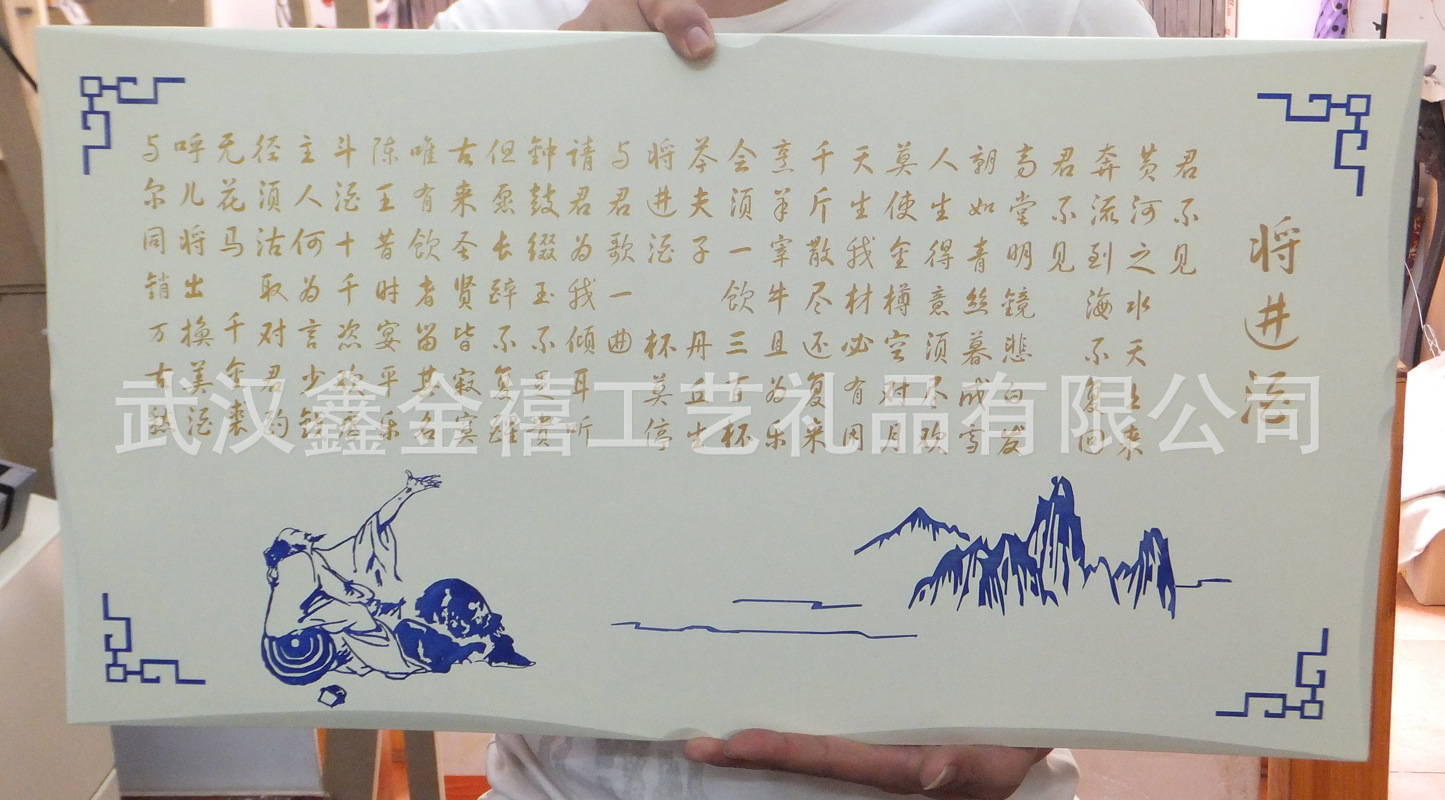 将进酒
君不见
黄河之水天上来
奔流到海不复回
君不见
高堂明镜悲白发
朝如青丝暮成雪
人生得意须尽欢
莫使金樽空对月
天生我材必有用
千斤散尽还复来
烹羊宰牛且为乐
会须一饮三百杯
岑夫子 丹丘生
将进酒 杯莫停
与君歌一曲
请君为我倾耳听
钟鼓缀玉不足贵
但愿长醉不复醒
古来圣贤皆寂寞
唯有饮者留其名
陈王昔时宴平乐
斗酒十千恣欢谑
主人何为言少钱
径须沽取对君酌
无花马 千金裘
呼儿将出换美酒
与尔同销万古愁
武汉鑫金禧工艺礼品有限公司